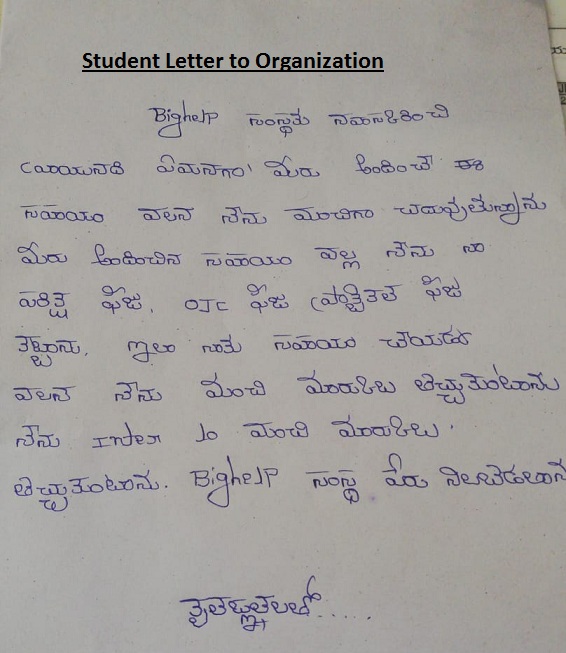 Student Letter to Organization
Bighelp సంస్థకు నమస్కరించి
వ్రాయునది ఏమనగా! మీరు అందించే ఈ
సహాయం వలన నేను మంచిగా చదువుతున్నాను
మీరు అందించిన సహాయం వల్ల నేను నా
పరీక్ష ఫీజు, OTC ఫీజు ప్రాక్టికల్ ఫీజు
కట్టాను. ఇలా నాకు సహాయం చేయడం
వలన నేను మంచి మార్కులు తెచ్చుకుంటాను
నేను Inter lo మంచి మార్కులు.
తెచ్చుకుంటాను. Bighelp సంస్థ పేరు నిలబెడతానే
కృతజ్ఞతలతో......